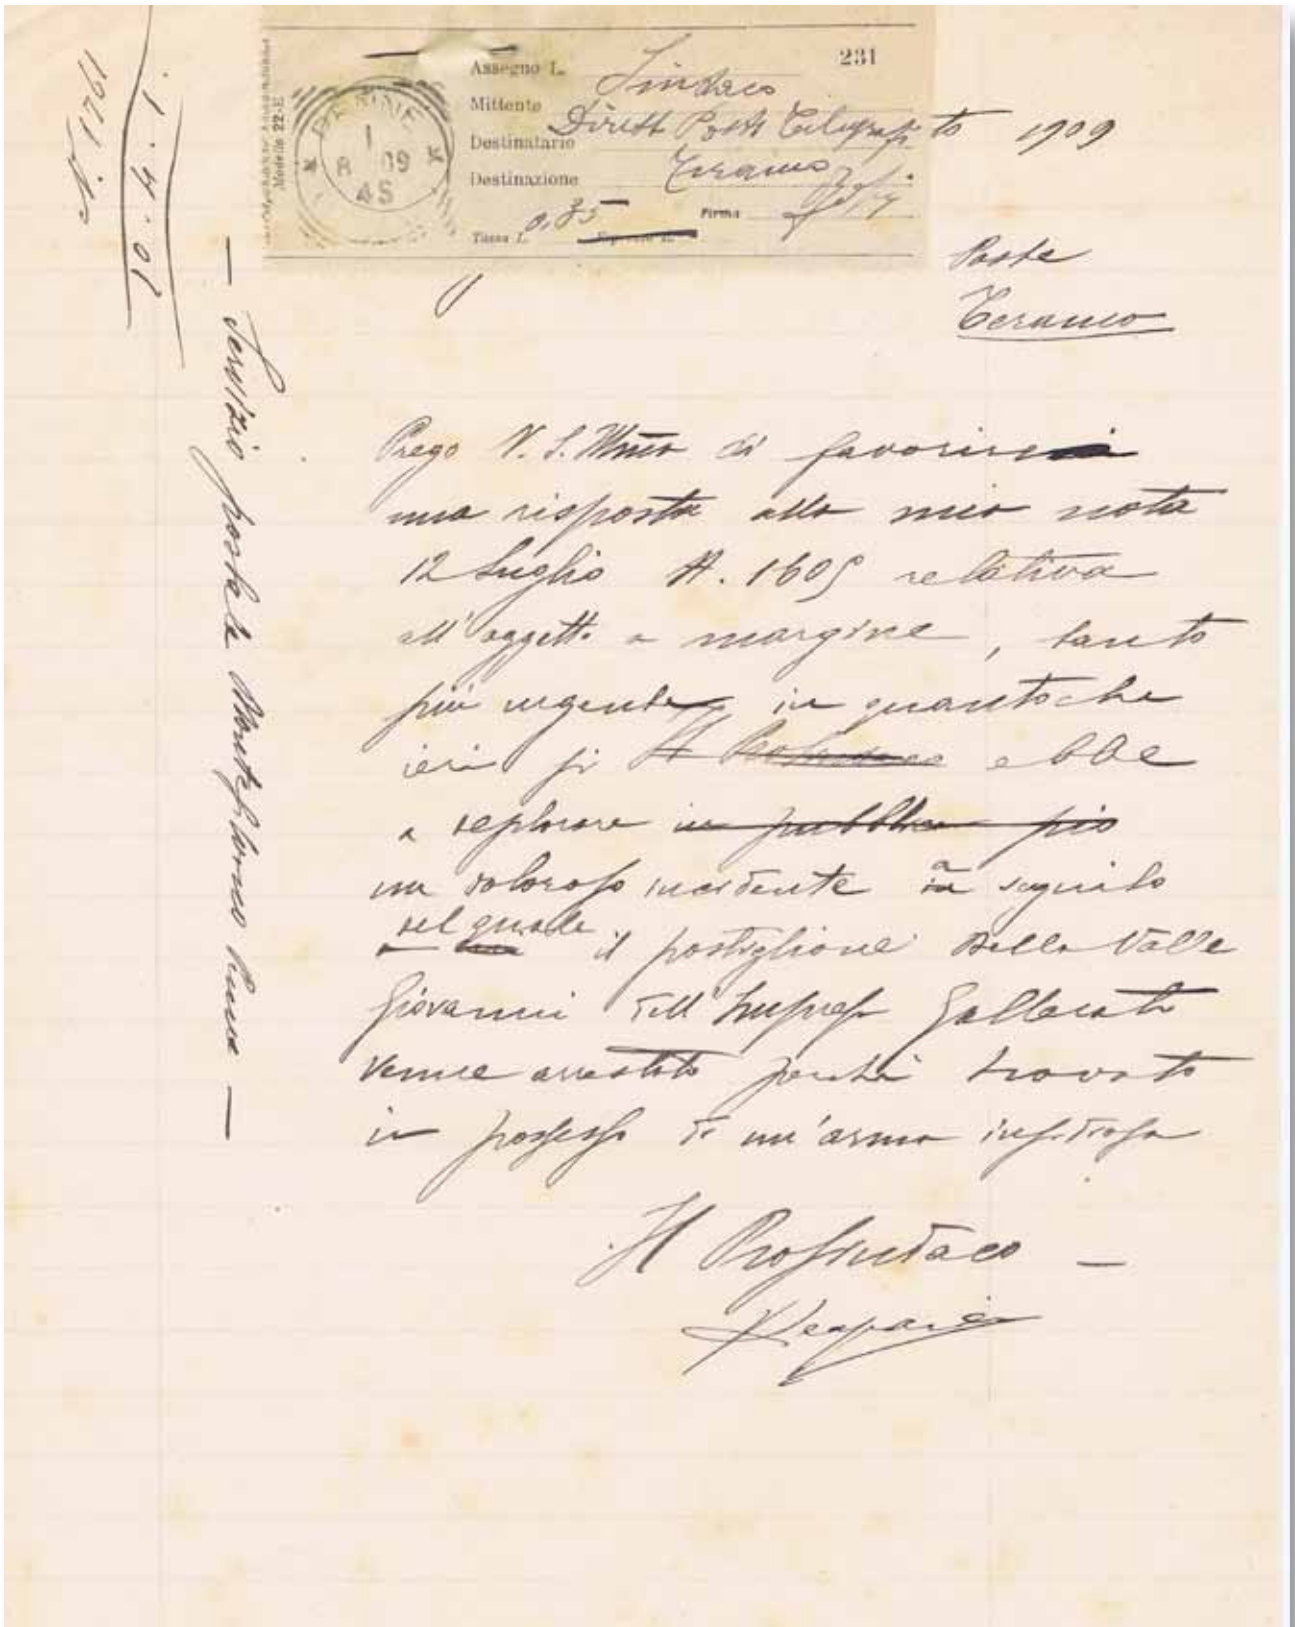 Modello 22-E
231
Assegno L.
Mittente Sindaco
Destinatario Dirett Poste Telegrafi
Destinazione Teramo
Tassa L. 0,35
Firma
PENNE
1
8 09
4S
to 1909
Poste
Teramo
1 . 4 . 01
— Servizio postale Montefranco Penne —
Prego V. S. Ill͞ma di favorire
una risposta alla mia nota
12 Luglio N. 1609 relativa
all'oggetto a margine, tanto
più urgente in quantoche
ieri si Il Prosindaco ebbe
a deplorare in pubblico pio
un doloroso incidente a seguito
del quale
il postiglione Della Valle
Giovanni dell'Impresa Gallerati
venne arrestato perchè trovato
in possesso di un'arma insidiosa
Il Prosindaco —